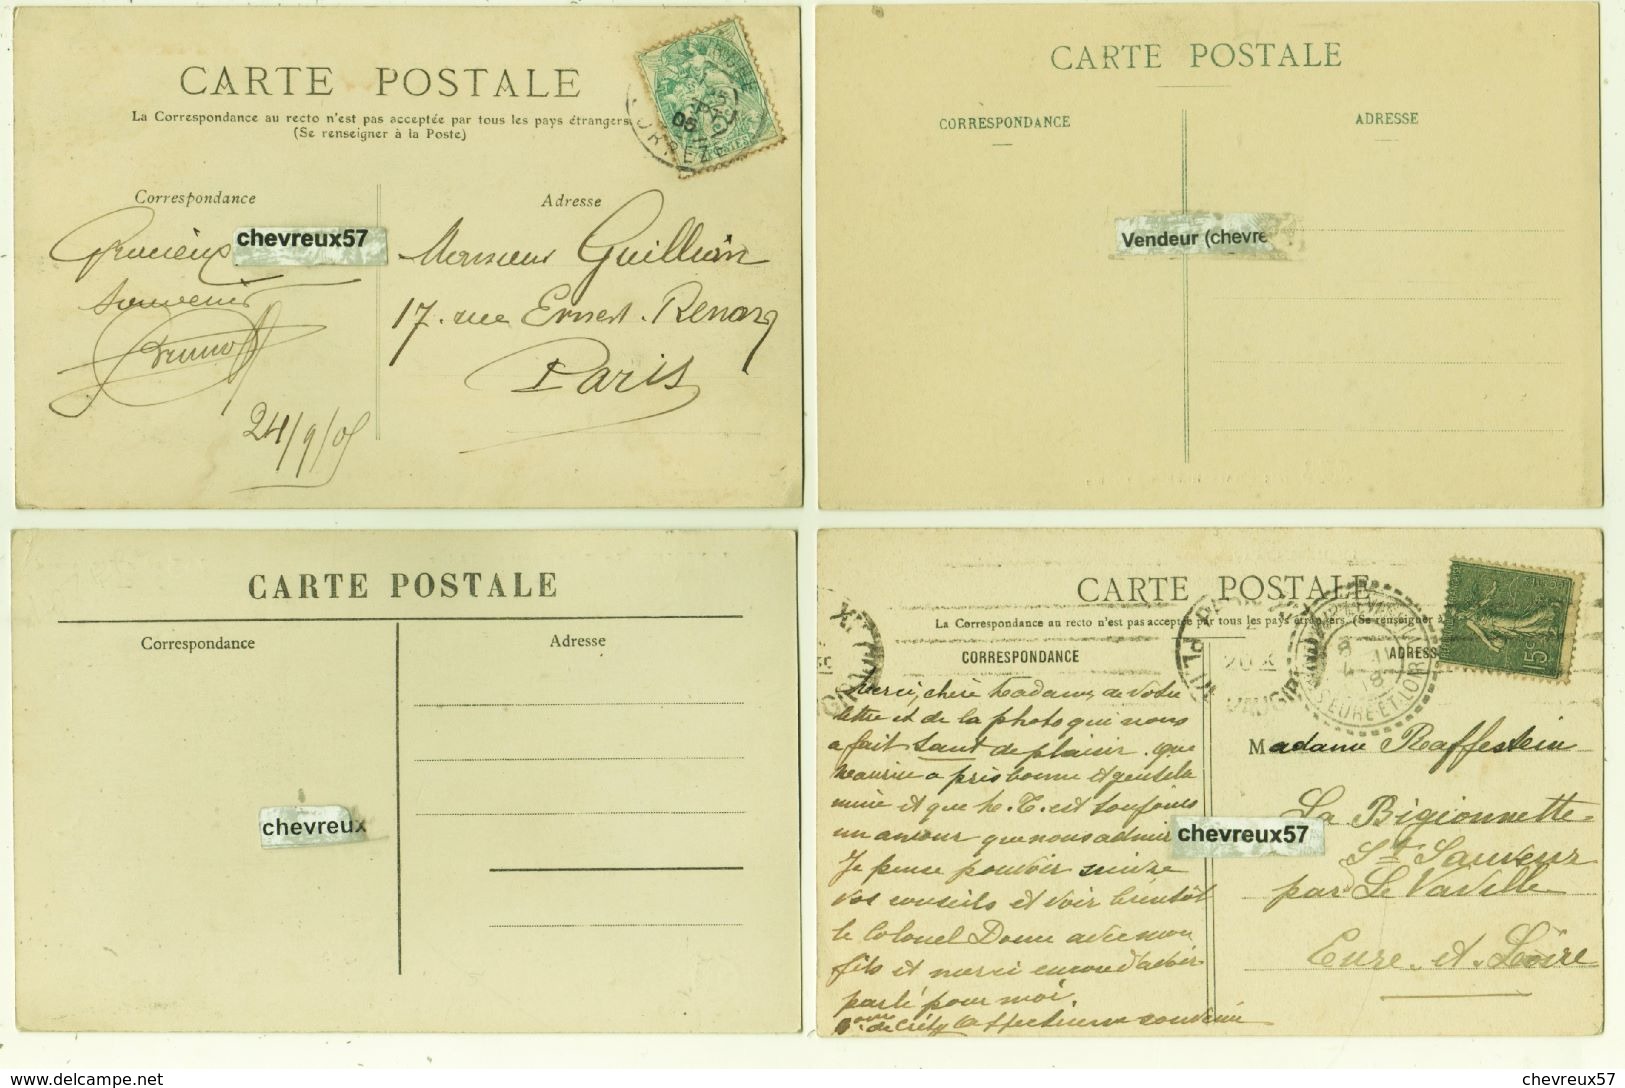 CARTE POSTALE
La Correspondance au recto n'est pas acceptée par tous les pays étrangers
(Se renseigner à la Poste)
05
CORREZE
Correspondance
Adresse
chevreux57
Gracieux
Souvenir
24/9/05
Monsieur Guillian
17. rue Ernest. Renan
Paris
CARTE POSTALE
CORRESPONDANCE
ADRESSE
Vendeur (chevre
CARTE POSTALE
Correspondance
Adresse
chevreux
CARTE POSTALE
La Correspondance au recto n'est pas acceptée par tous les pays étrangers. (Se renseigner à
CORRESPONDANCE
ADRESSE
15c
EURE ET LOIR
18
Merci, chère Madame, de votre
lettre et de la photo qui nous
a fait tant de plaisir. que
Maurice a pris bonne et gentille
mine et que M. T. est toujours
un amour que nous admir
Je pense pouvoir suivre
vos conseils et voir bientôt
le Colonel Doun avec mon
fils et merci encore d'avoir
parlé pour moi.
affectueux souvenir
chevreux57
Madame Raffestein
La Bigionnette
St Sauveur
par Le Vaville
Eure. et. Loire
delcampe.net
chevreux57